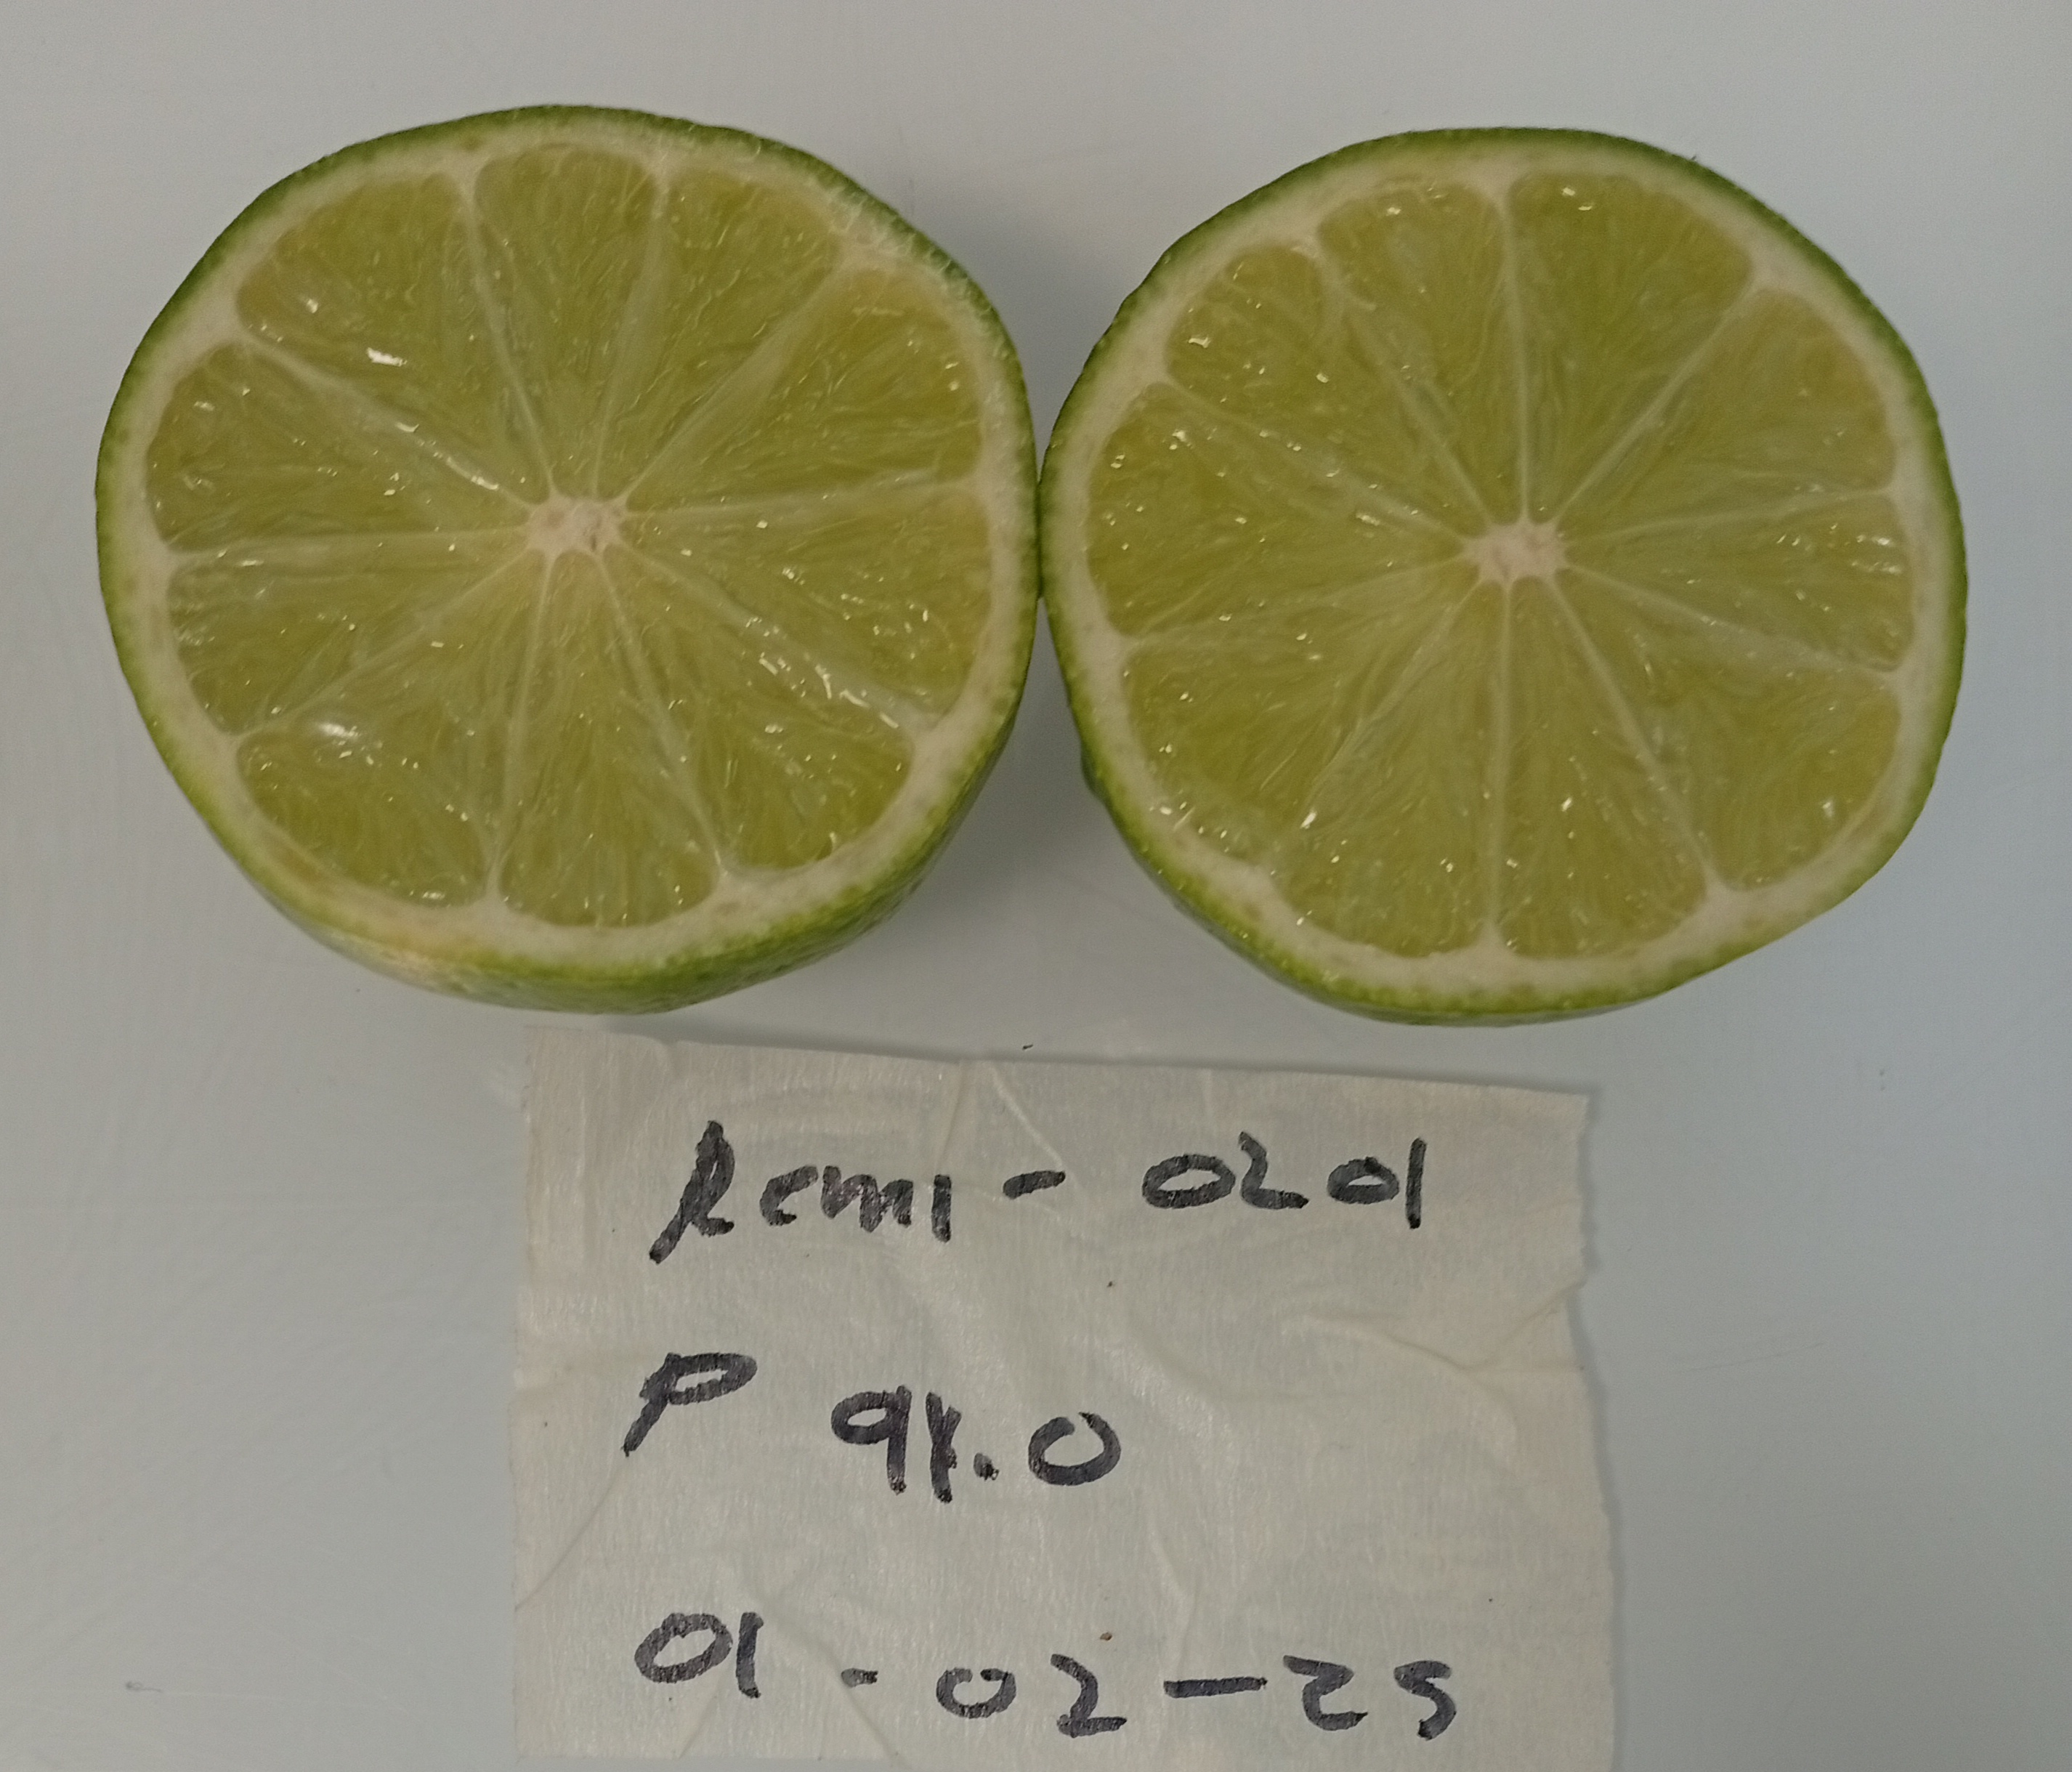 Remi - 0201
P 91.0
01 - 02 - 25